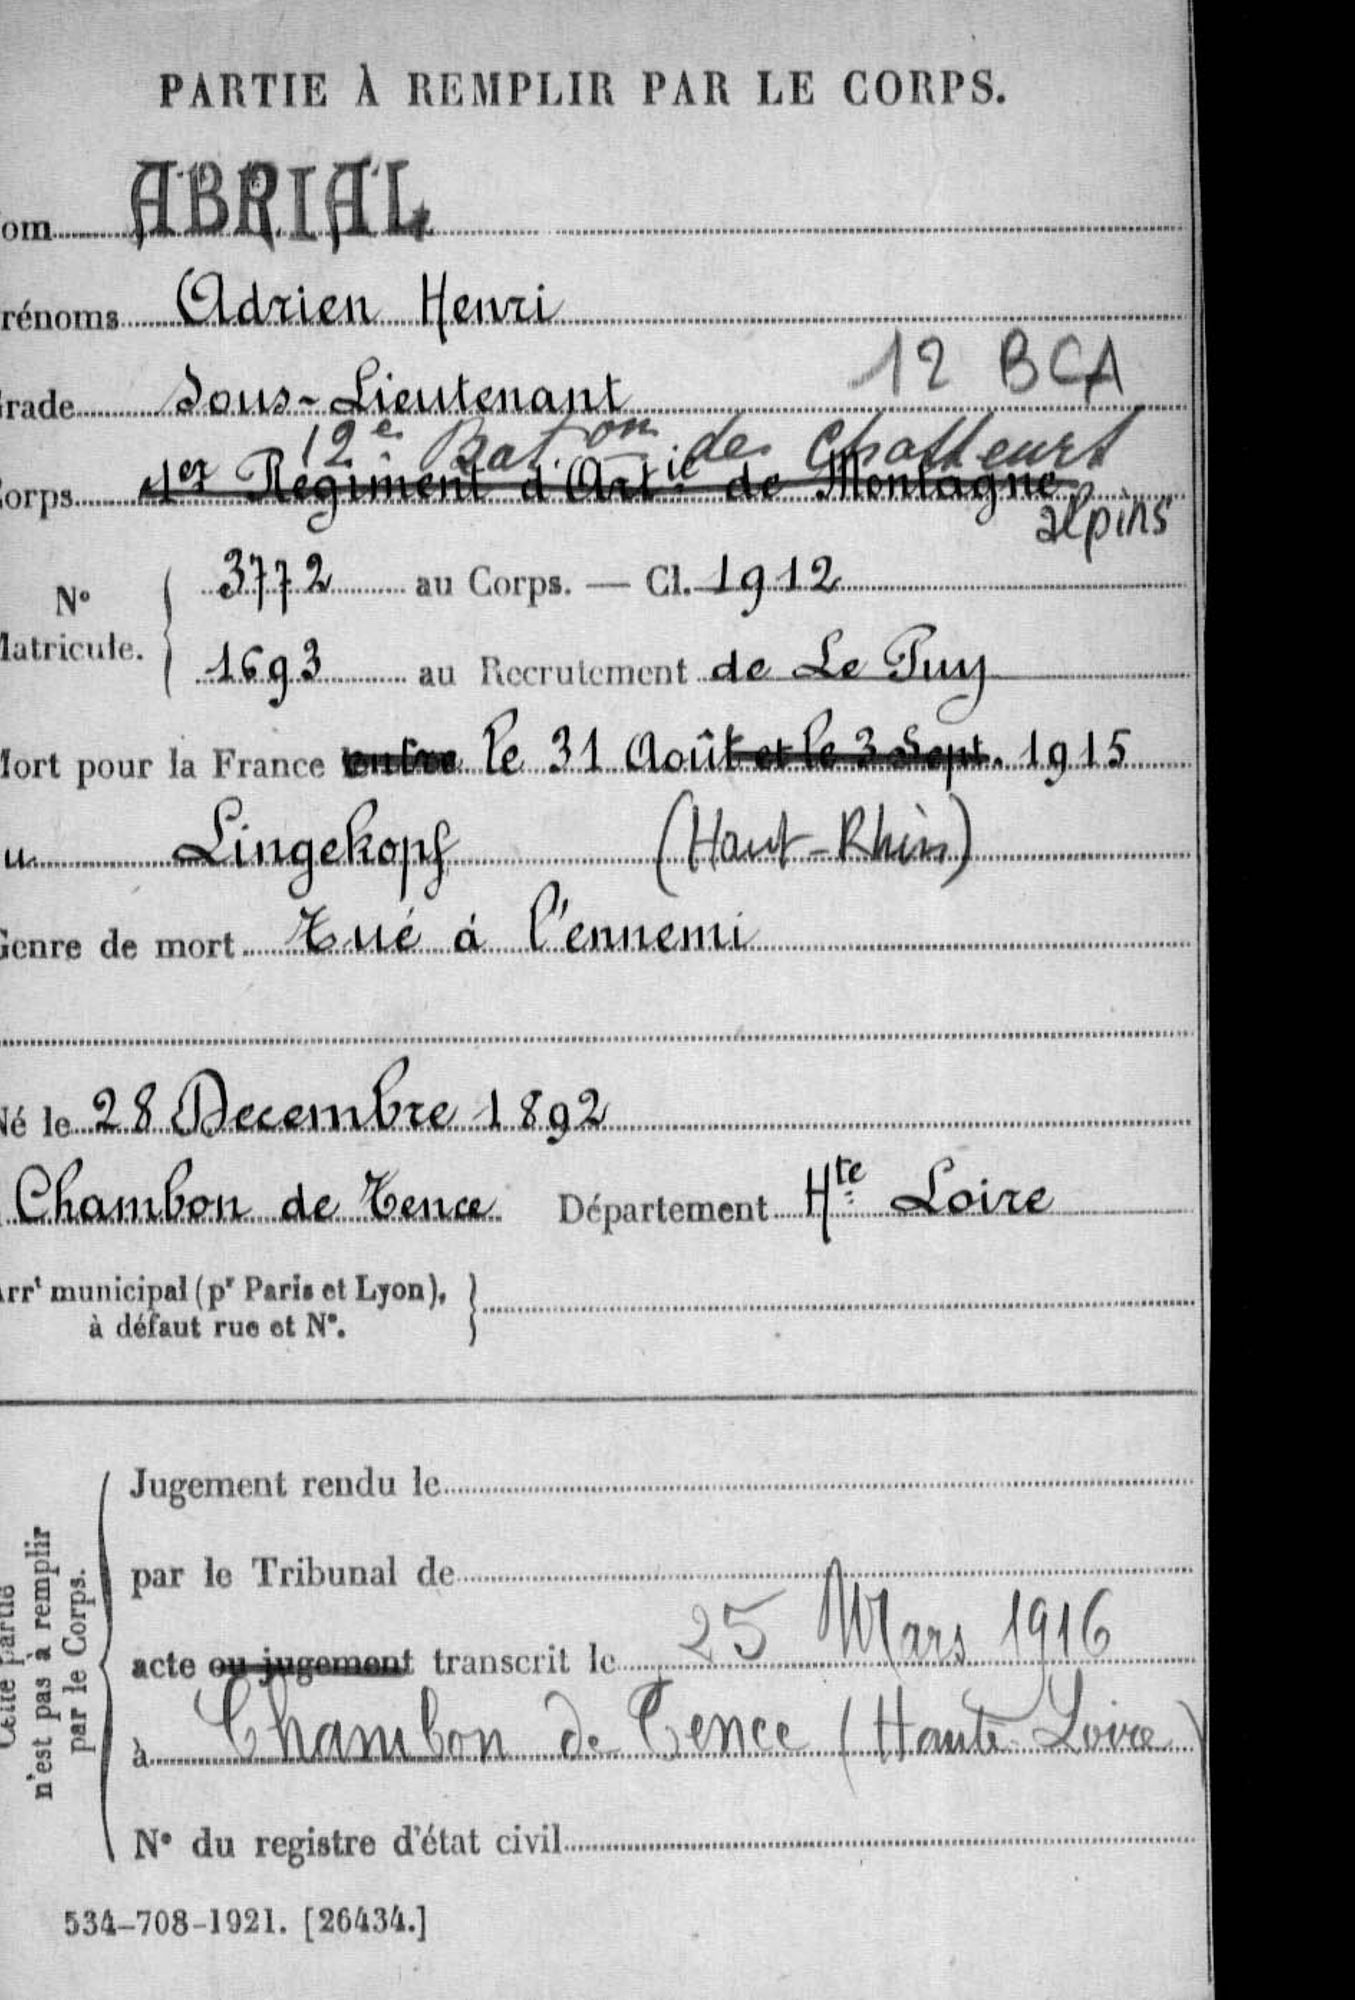 PARTIE À REMPLIR PAR LE CORPS.
om ABRIAL
rénoms Adrien Henri
12 BCA
rade Sous-Lieutenant
12e Bat.on de Chasseurs
orps 1er Régiment d'Artie de Montagne
alpins
N° Matricule.
3772 au Corps. — Cl. 1912
1693 au Recrutement de Le Puy
Mort pour la France entre le 31 Août et le 3 Sept. 1915
u Lingekopf (Haut-Rhin)
Genre de mort Tué à l'ennemi
Né le 28 Decembre 1892
Chambon de Tence Département Hte Loire
Arrt municipal (pr Paris et Lyon),
à défaut rue et N°.
Cette partie
n'est pas à remplir
par le Corps.
Jugement rendu le
par le Tribunal de
acte ou jugement transcrit le 25 Mars 1916
à Chambon de Tence (Haute Loire)
N° du registre d'état civil
534-708-1921. [26434.]